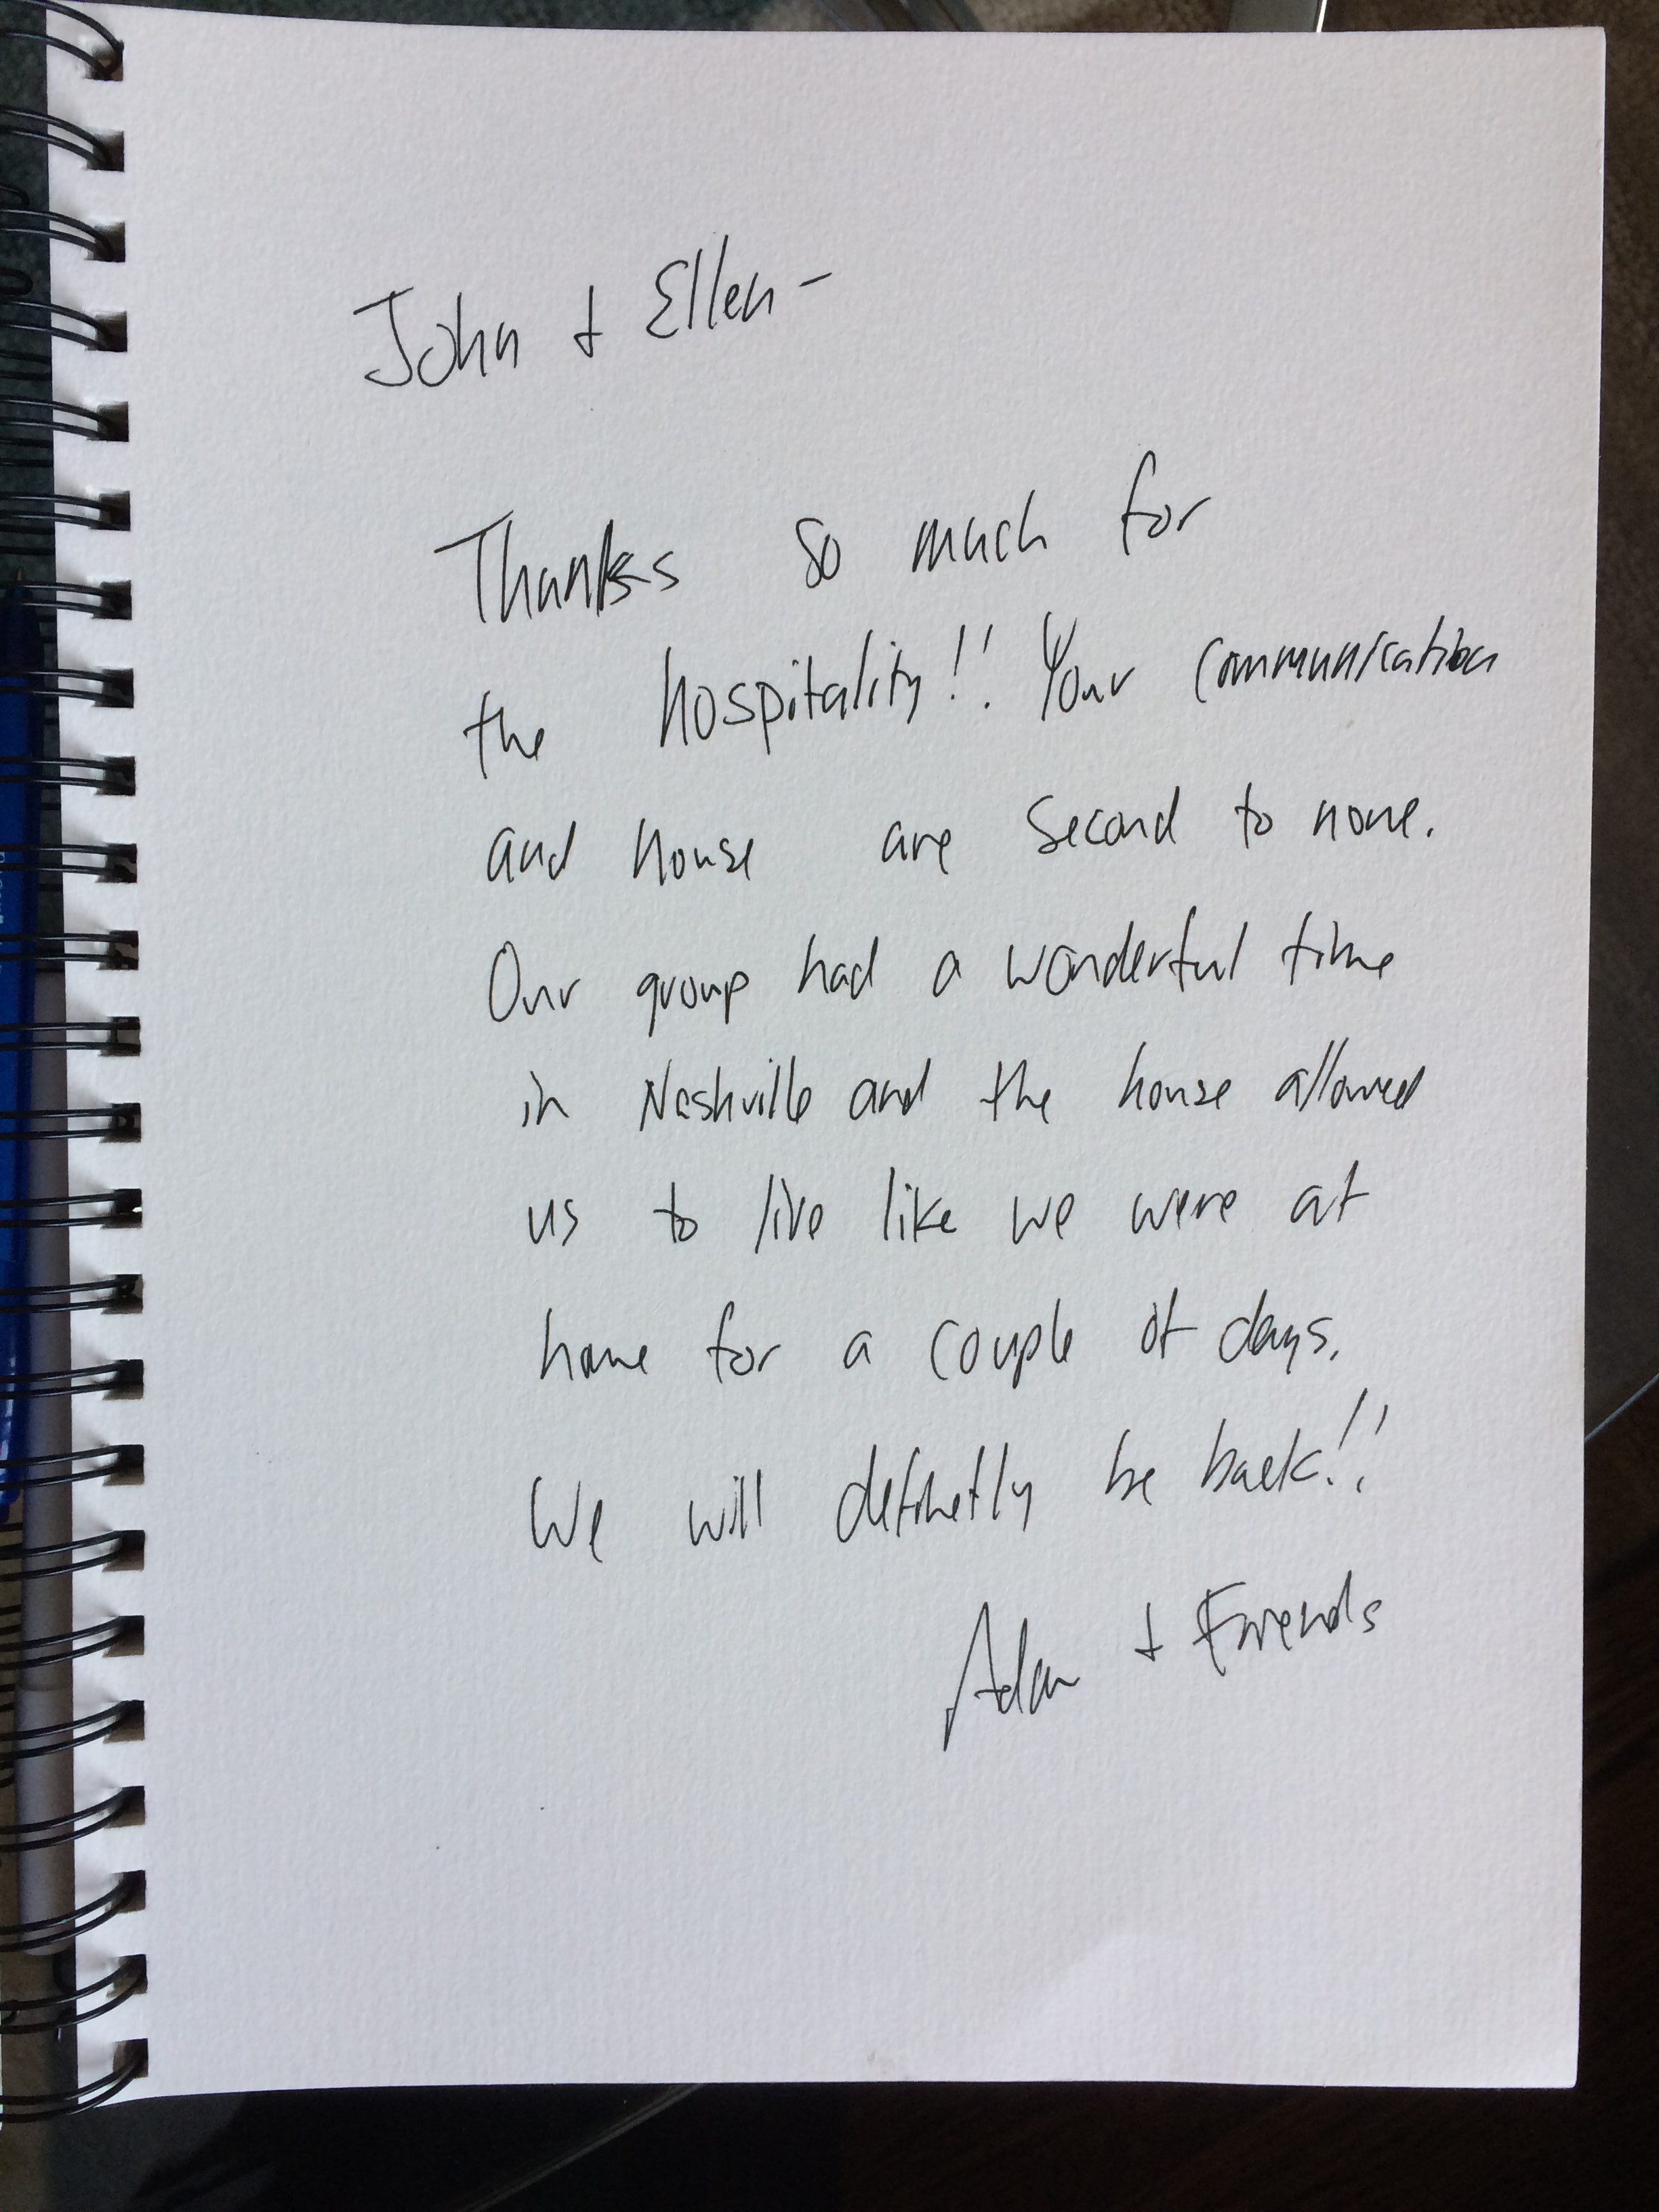 John + Ellen-
Thanks so much for
the hospitality!! Your communication
and house are second to none.
Our group had a wonderful time
in Nashville and the house allowed
us to live like we were at
home for a couple of days.
We will definetly be back!!
Adam + Friends